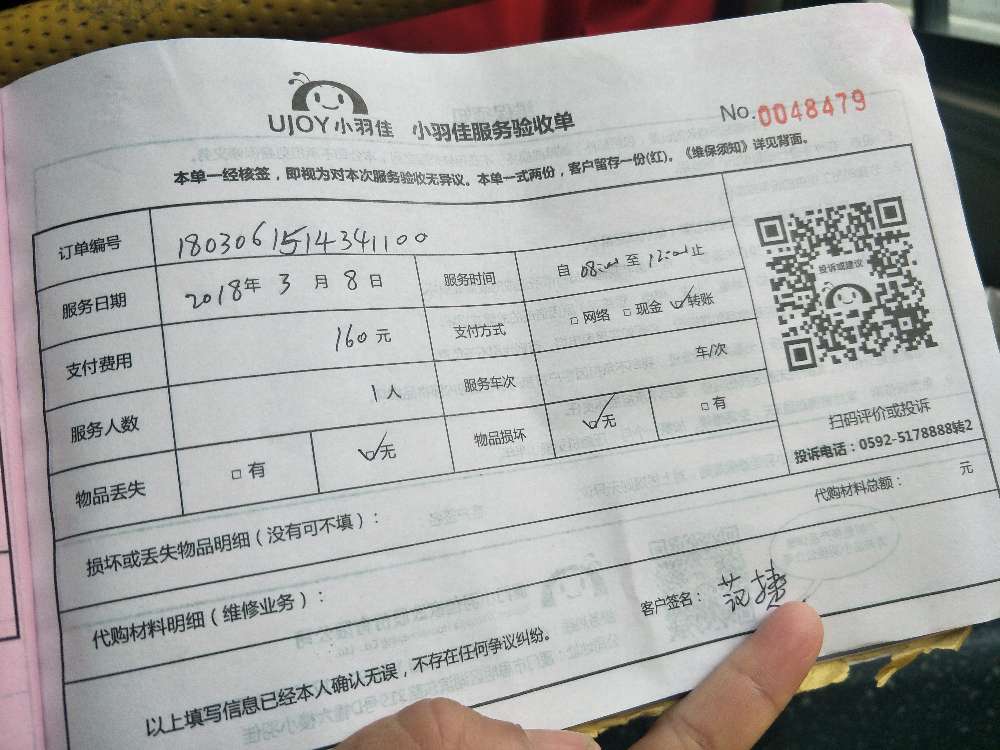 UJOY小羽佳 小羽佳服务验收单 No.0048479
本单一经核签，即视为对本次服务验收无异议。本单一式两份，客户留存一份(红)。《维保须知》详见背面。
订单编号 1803061514341100
服务日期 2018年 3 月 8 日 服务时间 自 08:00 至 12:00 止
支付费用 160 元 支付方式 □网络 □现金 ☑转账
服务人数 1人 服务车次 车/次
物品丢失 □有 ☑无 物品损坏 ☑无 □有
投诉或建议
扫码评价或投诉
投诉电话：0592-5178888转2
损坏或丢失物品明细（没有可不填）：
代购材料总额： 元
代购材料明细（维修业务）：
客户签名： 范捷
以上填写信息已经本人确认无误，不存在任何争议纠纷。